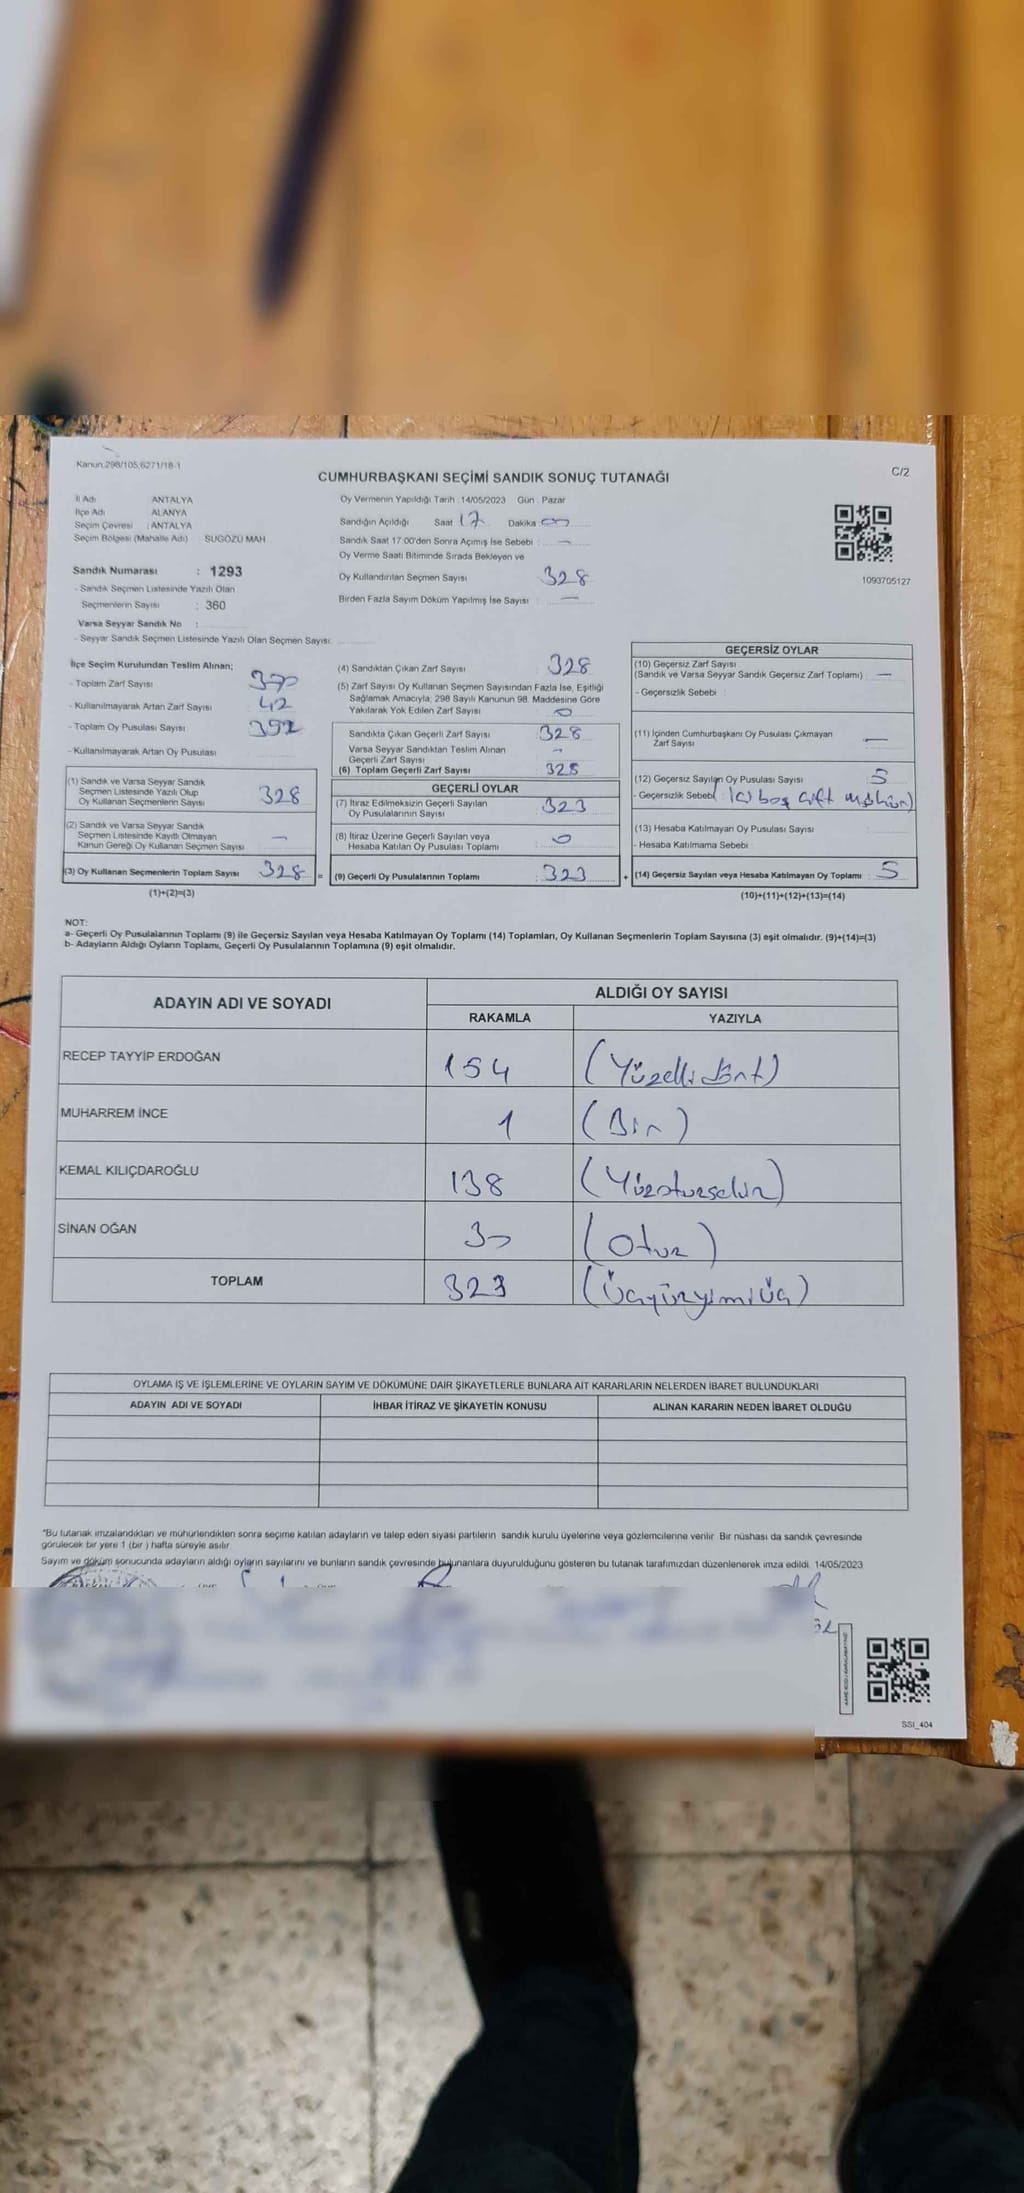 Kanun;298/105;6271/18-1
C/2
CUMHURBAŞKANI SEÇİMİ SANDIK SONUÇ TUTANAĞI
İl Adı ANTALYA
İlçe Adı ALANYA
Seçim Çevresi : ANTALYA
Seçim Bölgesi (Mahalle Adı) SUGÖZÜ MAH.
Oy Vermenin Yapıldığı Tarih : 14/05/2023 Gün : Pazar
Sandığın Açıldığı Saat 17 Dakika 00
Sandık Saat 17:00'den Sonra Açımış İse Sebebi : —
Oy Verme Saati Bitiminde Sırada Bekleyen ve
Oy Kullandırılan Seçmen Sayısı 328
Birden Fazla Sayım Döküm Yapılmış İse Sayısı : —
1093705127
Sandık Numarası : 1293
- Sandık Seçmen Listesinde Yazılı Olan
Seçmenlerin Sayısı : 360
Varsa Seyyar Sandık No :
- Seyyar Sandık Seçmen Listesinde Yazılı Olan Seçmen Sayısı:
İlçe Seçim Kurulundan Teslim Alınan;
- Toplam Zarf Sayısı 370
- Kullanılmayarak Artan Zarf Sayısı 42
- Toplam Oy Pusulası Sayısı 392
- Kullanılmayarak Artan Oy Pusulası
(1) Sandık ve Varsa Seyyar Sandık
Seçmen Listesinde Yazılı Olup
Oy Kullanan Seçmenlerin Sayısı 328
(2) Sandık ve Varsa Seyyar Sandık
Seçmen Listesinde Kayıtlı Olmayan
Kanun Gereği Oy Kullanan Seçmen Sayısı —
(3) Oy Kullanan Seçmenlerin Toplam Sayısı 328 =
(1)+(2)=(3)
(4) Sandıktan Çıkan Zarf Sayısı : 328
(5) Zarf Sayısı Oy Kullanan Seçmen Sayısından Fazla İse, Eşitliği
Sağlamak Amacıyla; 298 Sayılı Kanunun 98. Maddesine Göre
Yakılarak Yok Edilen Zarf Sayısı 0
Sandıkta Çıkan Geçerli Zarf Sayısı : 328
Varsa Seyyar Sandıktan Teslim Alınan
Geçerli Zarf Sayısı —
(6) Toplam Geçerli Zarf Sayısı 328
GEÇERLİ OYLAR
(7) İtiraz Edilmeksizin Geçerli Sayılan
Oy Pusulalarının Sayısı : 323
(8) İtiraz Üzerine Geçerli Sayılan veya
Hesaba Katılan Oy Pusulası Toplamı : 0
(9) Geçerli Oy Pusulalarının Toplamı : 323 +
GEÇERSİZ OYLAR
(10) Geçersiz Zarf Sayısı
(Sandık ve Varsa Seyyar Sandık Geçersiz Zarf Toplamı) —
- Geçersizlik Sebebi :
(11) İçinden Cumhurbaşkanı Oy Pusulası Çıkmayan
Zarf Sayısı —
(12) Geçersiz Sayılan Oy Pusulası Sayısı 5
- Geçersizlik Sebebi : içi boş çift mühür)
(13) Hesaba Katılmayan Oy Pusulası Sayısı
- Hesaba Katılmama Sebebi :
(14) Geçersiz Sayılan veya Hesaba Katılmayan Oy Toplamı : 5
(10)+(11)+(12)+(13)=(14)
NOT:
a- Geçerli Oy Pusulalarının Toplamı (9) ile Geçersiz Sayılan veya Hesaba Katılmayan Oy Toplamı (14) Toplamları, Oy Kullanan Seçmenlerin Toplam Sayısına (3) eşit olmalıdır. (9)+(14)=(3)
b- Adayların Aldığı Oyların Toplamı, Geçerli Oy Pusulalarının Toplamına (9) eşit olmalıdır.
ADAYIN ADI VE SOYADI
ALDIĞI OY SAYISI
RAKAMLA YAZIYLA
RECEP TAYYİP ERDOĞAN 154 (Yüzellidört)
MUHARREM İNCE 1 (Bir)
KEMAL KILIÇDAROĞLU 138 (Yüzotuzsekiz)
SİNAN OĞAN 30 (Otuz)
TOPLAM 323 (Üçyüzyirmiüç)
OYLAMA İŞ VE İŞLEMLERİNE VE OYLARIN SAYIM VE DÖKÜMÜNE DAİR ŞİKAYETLERLE BUNLARA AİT KARARLARIN NELERDEN İBARET BULUNDUKLARI
ADAYIN ADI VE SOYADI İHBAR İTİRAZ VE ŞİKAYETİN KONUSU ALINAN KARARIN NEDEN İBARET OLDUĞU
"Bu tutanak imzalandıktan ve mühürlendikten sonra seçime katılan adayların ve talep eden siyasi partilerin sandık kurulu üyelerine veya gözlemcilerine verilir. Bir nüshası da sandık çevresinde
görülecek bir yere 1 (bir ) hafta süreyle asılır.
Sayım ve döküm sonucunda adayların aldığı oyların sayılarını ve bunların sandık çevresinde bulunanlara duyurulduğunu gösteren bu tutanak tarafımızdan düzenlenerek imza edildi. 14/05/2023
SSI_404